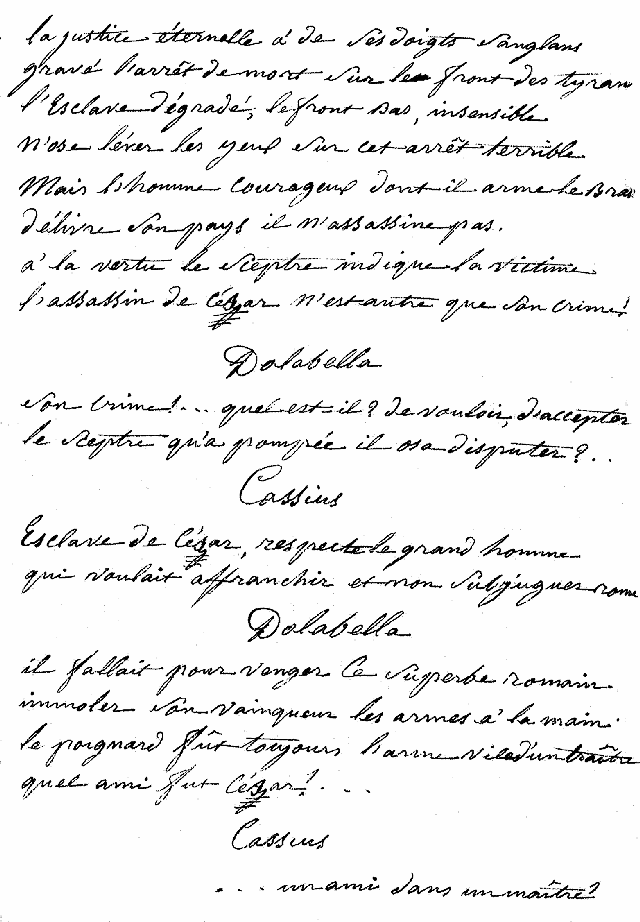 la justice éternelle á de ses doigts sanglans
gravé l'arrêt de mort sur le front des tyran
l'Esclave dégradé, le front Bas, insensible
N'ose léver les yeux sur cet arrêt terrible
Mais l'homme courageux dont il arme le Bras
délivre son pays il N'assassine pas.
á la vertu le sceptre indique la victime
l'assassin de César N'est autre que son crime!
Dolabella
son crime!... quel est il? de vouloir, d'accepter
le sceptre qu'a pompée il osa disputer?..
Cassius
Esclave de César, respecte le grand homme
qui voulait affranchir et non subjuguer rome
Dolabella
il fallait pour venger Ce superbe romain
immoler son vainqueur les armes á la main.
le poignard fût toujours l'arme vile d'un traître
quel ami fut César!...
Cassius
... un ami dans un maître?